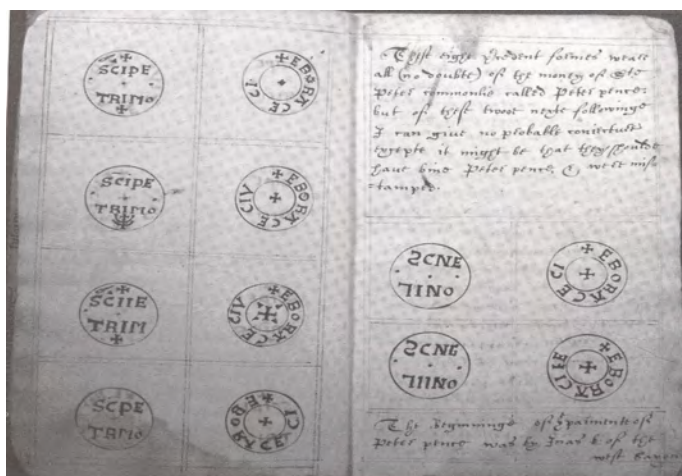 SCIPE
TRIMO
✠EBORACE CI
SCIPE
TRIMO
✠EBORACE CIV
SCIIE
TRIM
✠EBORACE CIV
SCPE
TRIMO
✠EBORACE CI
These eight precedent formes weare
all (no doubte) of the money of Ste
Peter commonlie called Peter pence.
but of these twoe nexte followinge
I can give no probable coniecture
excepte it might be that they shoulde
have bine Peter pence, & were mis-
stamped.
SCNE
ONIL
✠EBORACE CI
SCNE
ONIIL
✠EBORACIIE
The beginninge of ye paimente of
Peter pence was by Inas k. of the
west Saxon